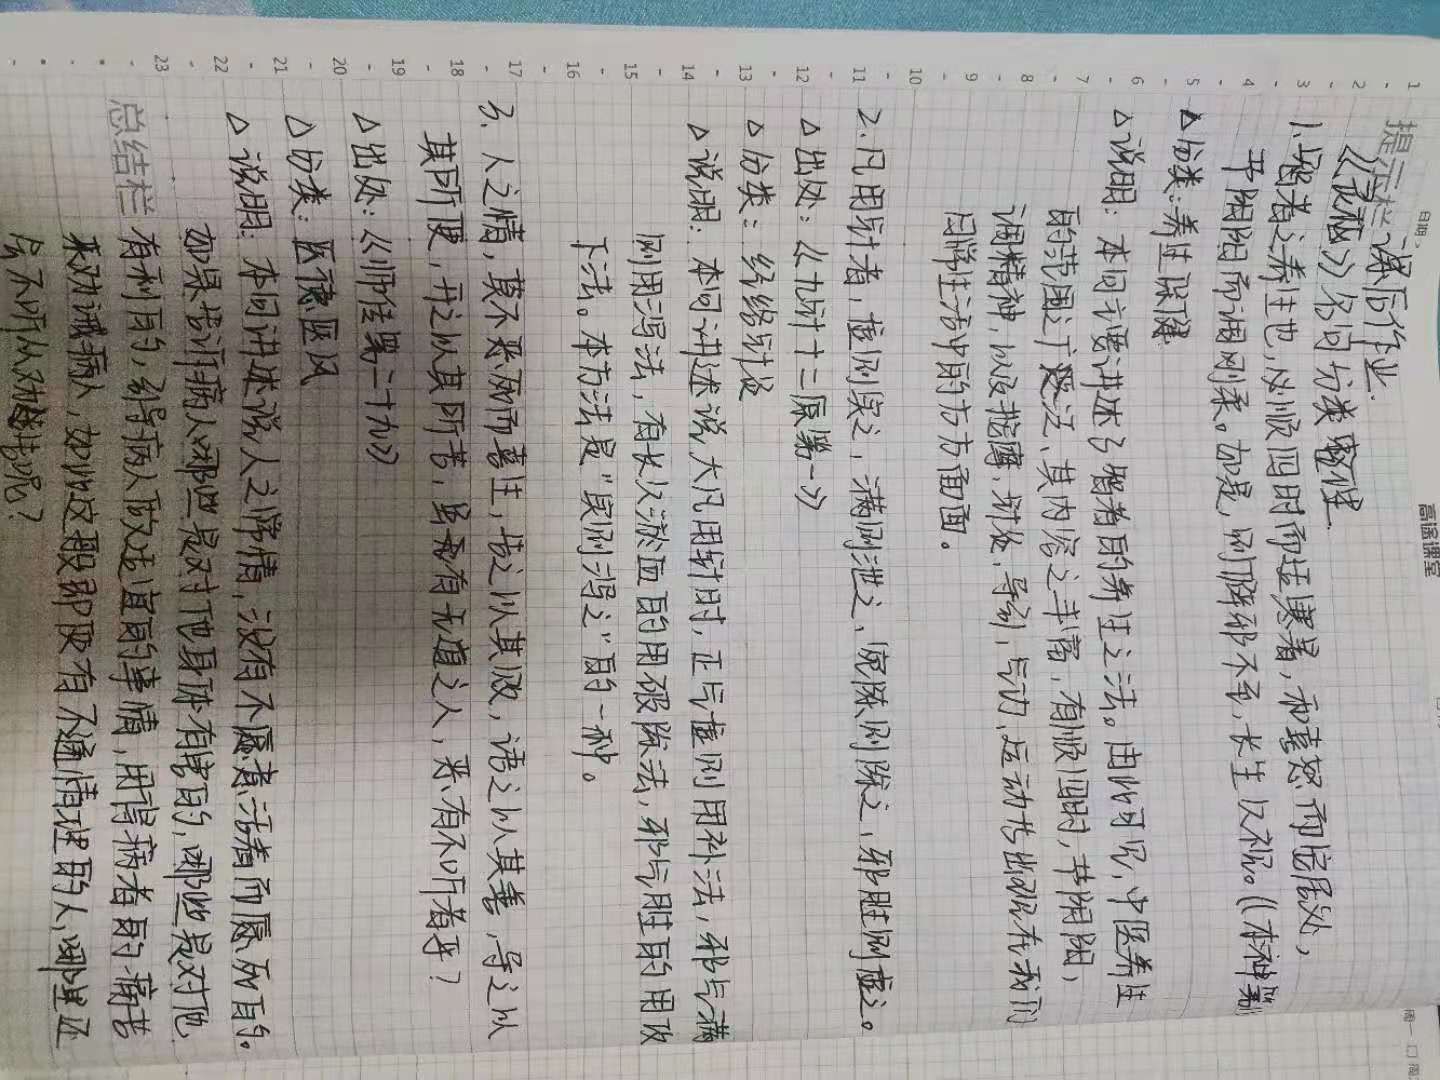 日期>
高途课堂
提示栏 课后作业.
《灵枢》名句分类整理
1.智者之养生也,必顺四时而适寒暑,和喜怒而安居处,
节阴阳而调刚柔。如是,则僻邪不至,长生久视。《本神第
△分类:养生保健
△说明:本句主要讲述了智者的养生之法。由此可见,中医养生
的范围之广变泛,其内容之丰富,有顺四时,节阴阳,
调精神,以及按摩,针灸,导引,气功,运动皆出现在我们
日常生活中的方方面面。
2.凡用针者,虚则实之,满则泄之,宛陈则除之,邪胜则虚之。
△出处:《九针十二原第一》
△分类:经络针灸
△说明:本句讲述说大凡用针时,正气虚则用补法,邪气满
则用泻法,有长久淤血的用破除法,邪气胜的用攻
下法。本方法是"实则泻之"的一种。
3、人之情,莫不恶死而喜生,告之以其败,语之以其善,导之以
其所便,开之以其所苦,虽有无道之人,恶有不听者乎?
△出处:《师传第二十九》
△分类:医德医风
△说明:本句讲述说人之常情,没有不愿意活着而愿死的。
如果告诉病人哪些是对他身体有害的,哪些是对他
总结栏 有利的,引导病人改适宜的事情,用病者的病苦
来劝诫病人,如此这般即使有不通情理的人,哪里还
会不听从劝告呢?
1
2
3
4
5
6
7
8
9
10
11
12
13
14
15
16
17
18
19
20
21
22
23